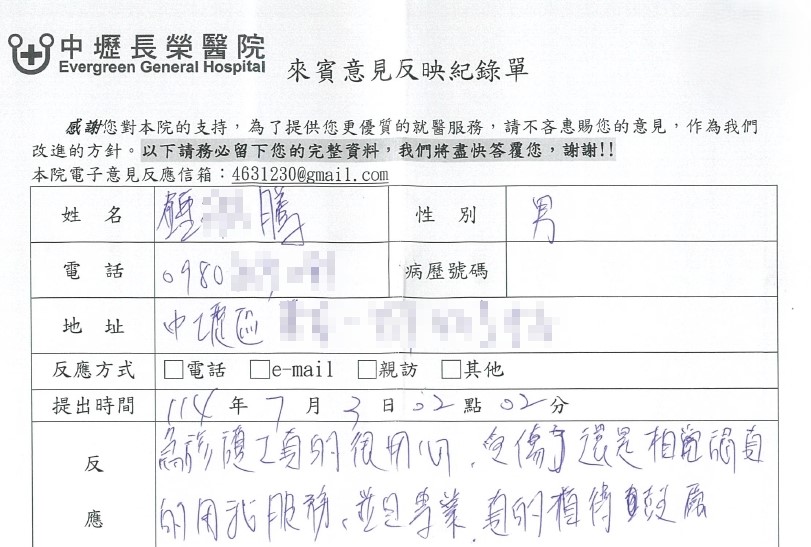 中壢長榮醫院
Evergreen General Hospital
來賓意見反映紀錄單
感謝您對本院的支持,為了提供您更優質的就醫服務,請不吝惠賜您的意見,作為我們
改進的方針。以下請務必留下您的完整資料,我們將盡快答覆您,謝謝!!
本院電子意見反應信箱:4631230@gmail.com
姓 名 騰 性 別 男
電 話 0980 病歷號碼
地 址 中壢區
反應方式 □電話 □e-mail □親訪 □其他
提出時間 114 年 7 月 3 日 02 點 02 分
反 急診護士真的很用心,受傷了還是相當認真
應 的用我服務,並且專業,真的值得鼓勵